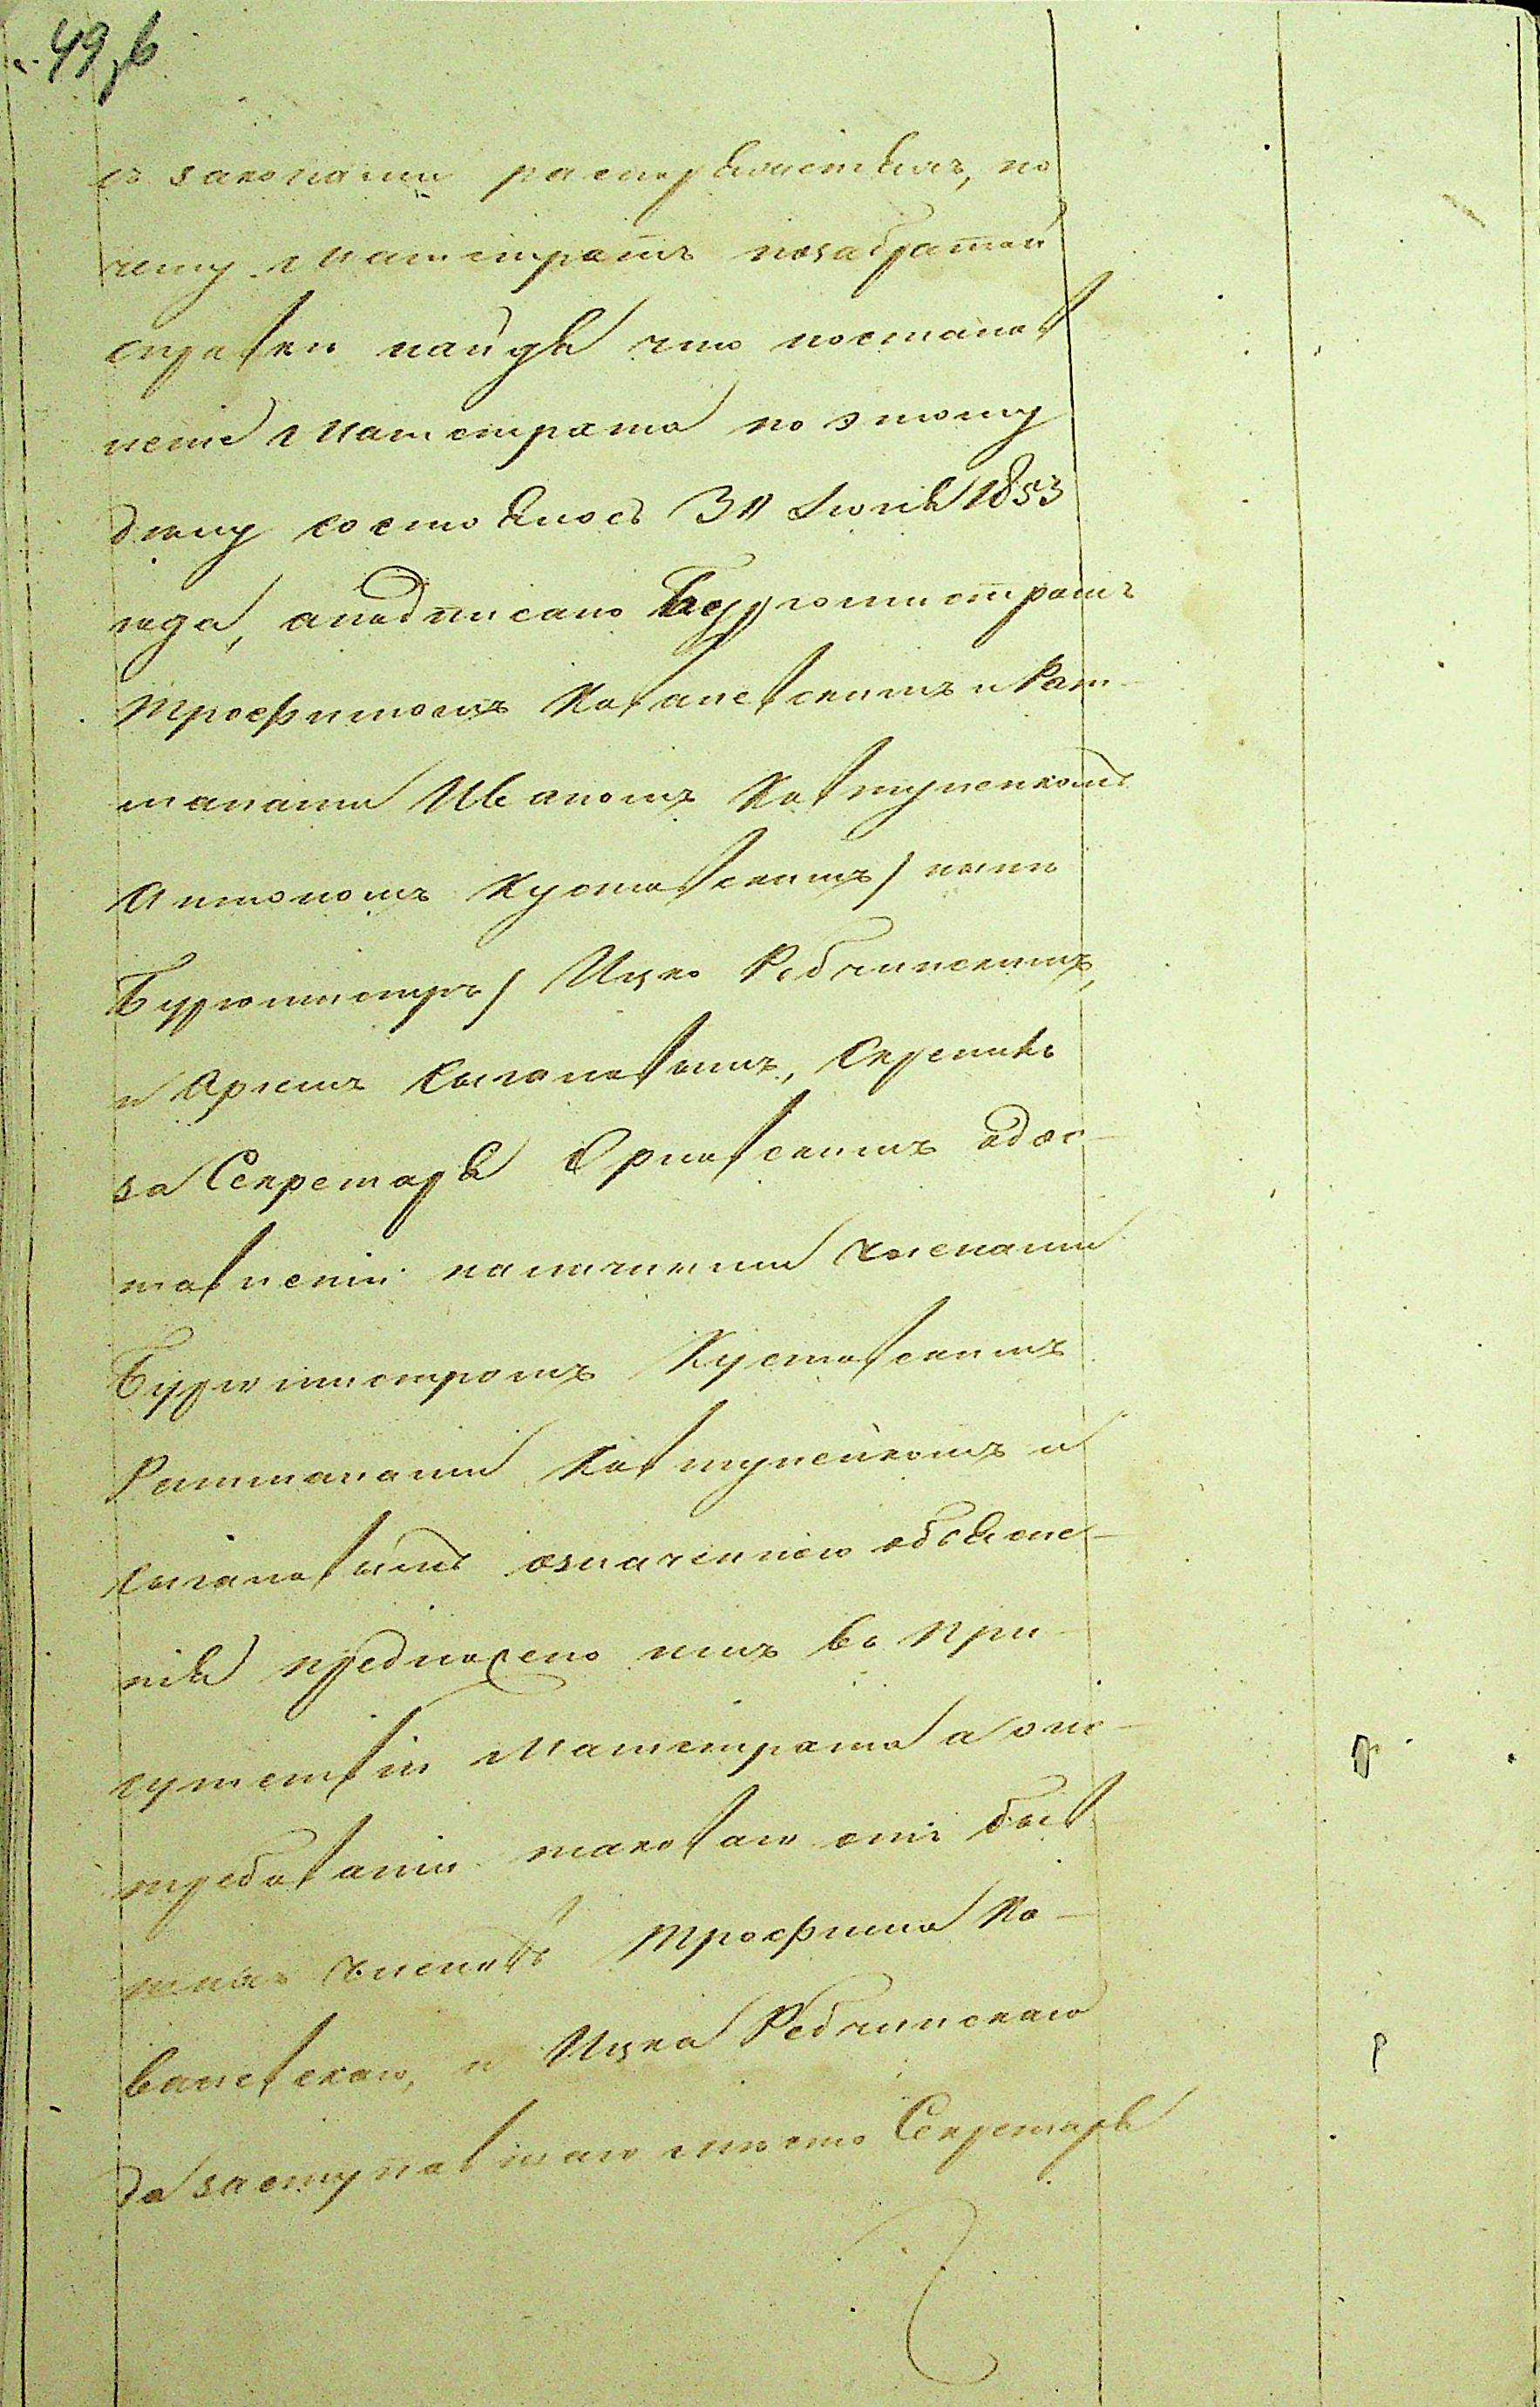 49 об
съ законами распоряженіямъ, по
чему Магистратъ пособратой
справки найдя что постанов
леніе Магистрата по этому
делу состоялось 31 Іюля 1853
года, а подписано Бургомистромъ
Трофимомъ Ковалевскимъ и Рат-
манами Иваномъ Колтуненкомъ
Антономъ Кустовскимъ / ныне
Бургомистръ / Ицко Рабчинскимъ,
и Арономъ Цыгановымъ, Скрепилъ
за Секретаря Орловскимъ о дос-
тавленіи наличными Членами
Бургомистромъ Кустовскимъ
Ратманами Колтуненкомъ и
Цыгановымъ означеннаго объясне-
нія предложено имъ въ При-
сутствіи Магистрата а о ис-
требованіи таковаго отъ быв
шихъ членовъ Трофима Ко-
валевскаго, и Ицка Рабчинскаго
да заступавшаго место Секретаря